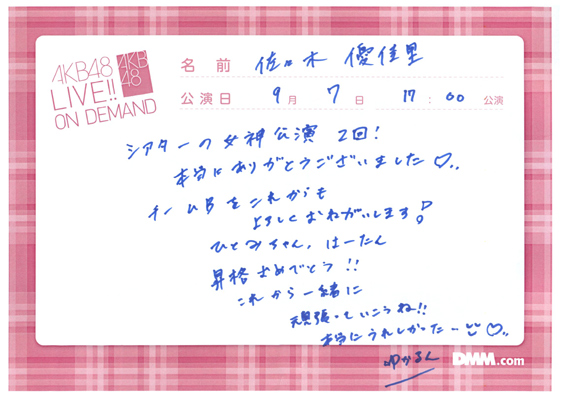 AKB48
LIVE!!
ON DEMAND
AKB
48
名前 佐々木 優佳里
公演日 9月 7日 17:00 公演
シアターの女神公演 2回!
本当にありがとうございました♡..
チームBをこれからも
よろしくおねがいします!
ひとみちゃん、はーたん
昇格おめでとう!!
これから一緒に
頑張っていこうね!!
本当にうれしかったー♡..
ゆかるん
DMM.com